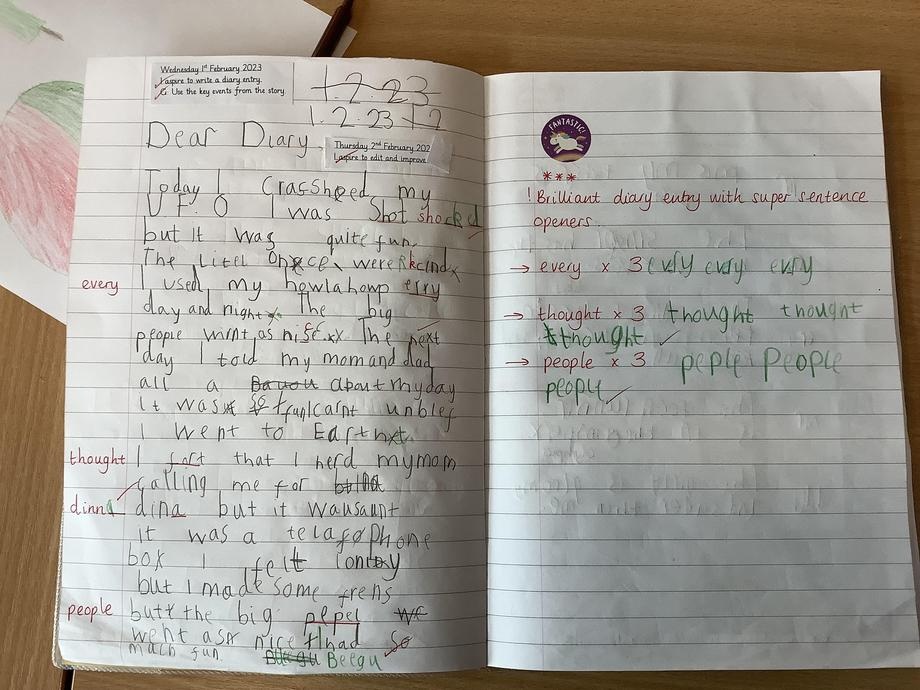 Wednesday 1st February 2023
I aspire to write a diary entry.
G Use the key events from the story.
1.2.23
1.2.23 + 2
Dear Diary
Thursday 2nd February 202
I aspire to edit and improve
Today I Crassheed my
U F. O I was Shot shocked
but it was quite fun.
The Litel were
every
I used my erry
day and night. The big
people wirnt as The next
day I told my mom and dad
all a about my day
it was so fun I carnt unblef
I went to Earth
thought
I fort that I herd my mom
calling me for
dinna
dina but it wausunt
it was a telafophone
box I felt lonley
but I made some frens
people
butt the big pepel we
went asr nice I had so
much fun Beegu Beegu
FANTASTIC!
***
! Brilliant diary entry with super sentence
openers.
→ every x 3 evry evry evry
→ thought x 3 thought thought
thought
→ people x 3 peple People
people